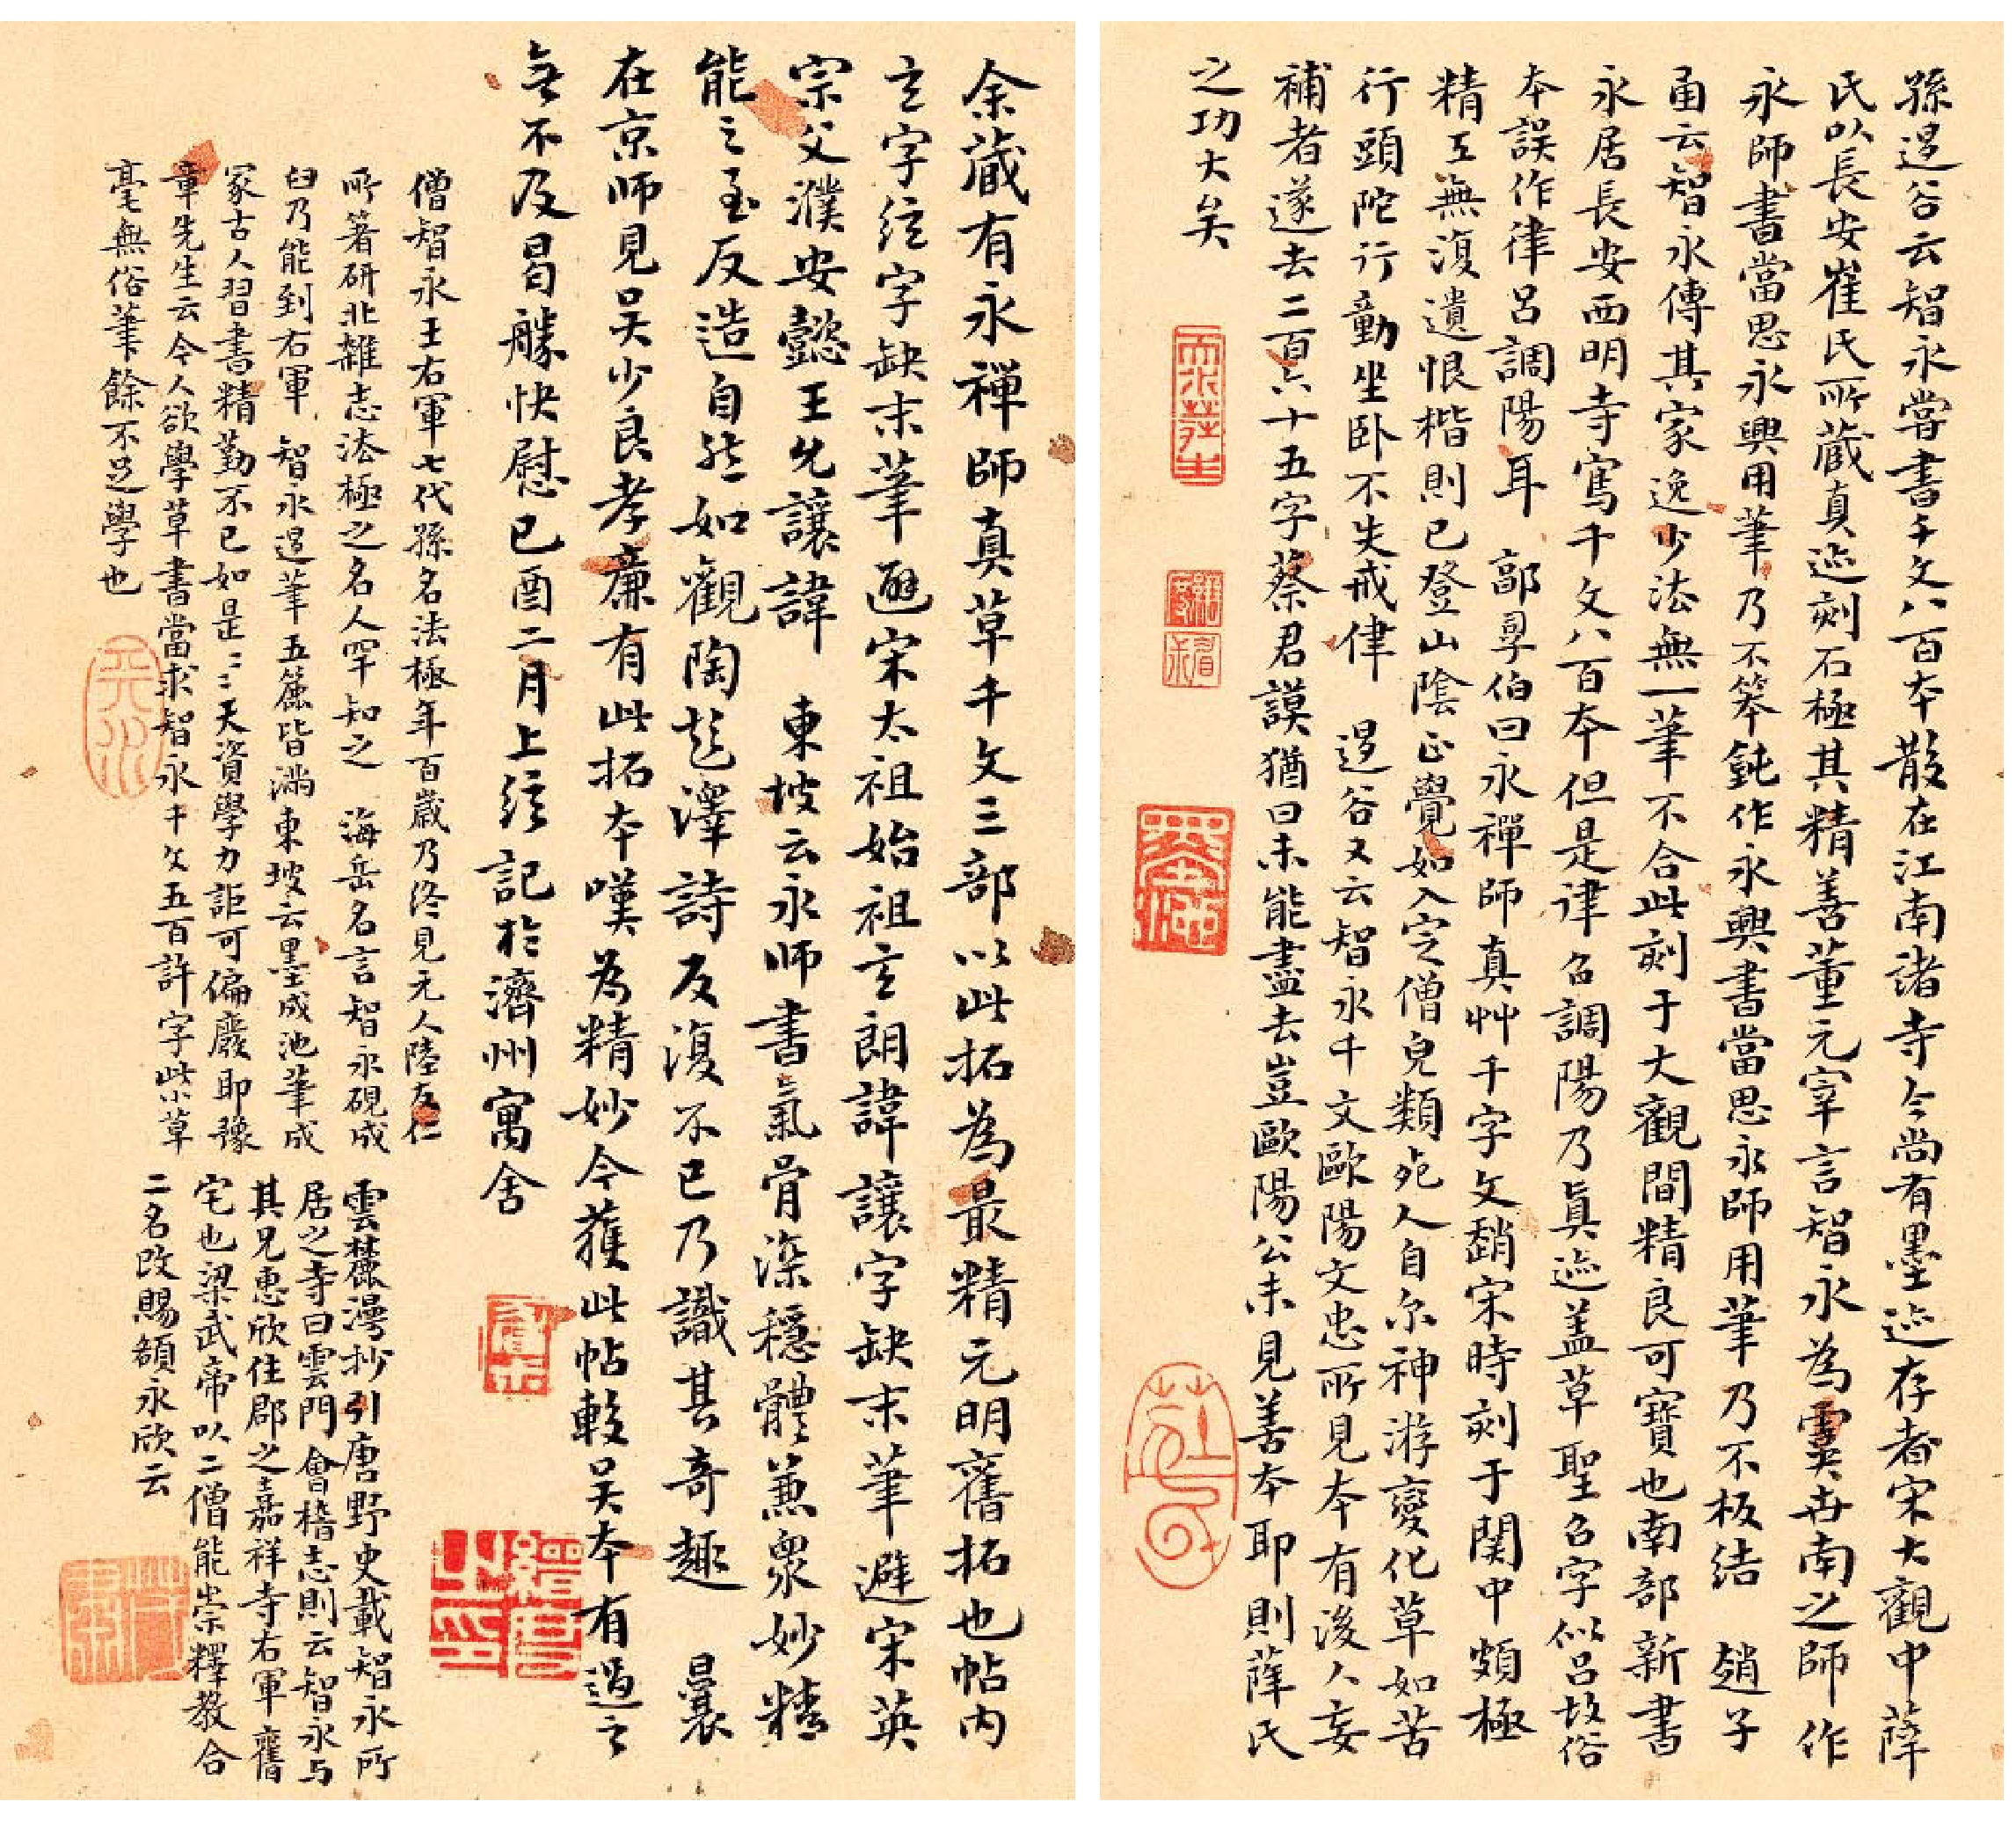 孫退谷云智永嘗書千文八百本散在江南諸寺今尚有墨迹存者宋大觀中薛
氏以長安崔氏所藏真迹刻石極其精善董元宰言智永為虞世南之師作
永師書當思永興用筆乃不笨鈍作永興書當思永師用筆乃不板結　趙子
函云智永傳其家逸少法無一筆不合此刻于大觀間精良可寶也南部新書
永居長安西明寺寫千文八百本但是律召調陽乃真迹蓋草聖召字似呂故俗
本誤作律呂調陽耳　郭胤伯曰永禪師真艸千字文趙宋時刻于關中頗極
精工無復遺恨楷則已登山陰正覺如入定僧皃類死人自尔神游變化草如苦
行頭陀行動坐臥不失戒律　退谷又云智永千文歐陽文忠所見本有後人妄
補者遂去二百六十五字蔡君謨猶曰未能盡去豈歐陽公未見善本耶則薛氏
之功大矣
余藏有永禪師真草千文三部以此拓為最精元明舊拓也帖内
玄字絃字缺末筆避宋太祖始祖玄朗諱讓字缺末筆避宋英
宗父濮安懿王允讓諱　東坡云永師書氣骨深穩體兼衆妙精
能之至反造自然如觀陶彭澤詩反復不已乃識其奇趣　曩
在京師見吴少良孝廉有此拓本嘆為精妙今獲此帖較吴本有過之
無不及曷勝快慰己酉二月上絃記於濟州寓舍
僧智永王右軍七代孫名法極年百歲乃終見元人陸友仁
所著研北雜志法極之名人罕知之　海岳名言智永硯成
臼乃能到右軍　智永退筆五簏皆滿東坡云墨成池筆成
冢古人習書精勤不已如是〻〻天資學力詎可偏廢耶豫
章先生云今人欲學草書當求智永千文五百許字此小草
毫無俗筆餘不足學也
雲麓漫抄引唐野史載智永所
居之寺曰雲門會稽志則云智永与
其兄惠欣住郡之嘉祥寺右軍舊
宅也梁武帝以二僧能崇釋教合
二名改賜額永欣云